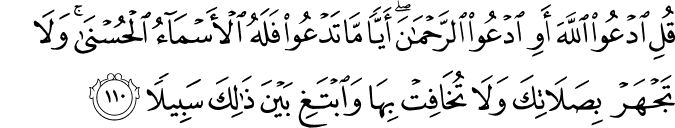 قُلِ ٱدْعُوا۟ ٱللَّهَ أَوِ ٱدْعُوا۟ ٱلرَّحْمَـٰنَ ۖ أَيًّۭا مَّا تَدْعُوا۟ فَلَهُ ٱلْأَسْمَآءُ ٱلْحُسْنَىٰ ۚ وَلَا
تَجْهَرْ بِصَلَاتِكَ وَلَا تُخَافِتْ بِهَا وَٱبْتَغِ بَيْنَ ذَٰلِكَ سَبِيلًۭا ١١٠